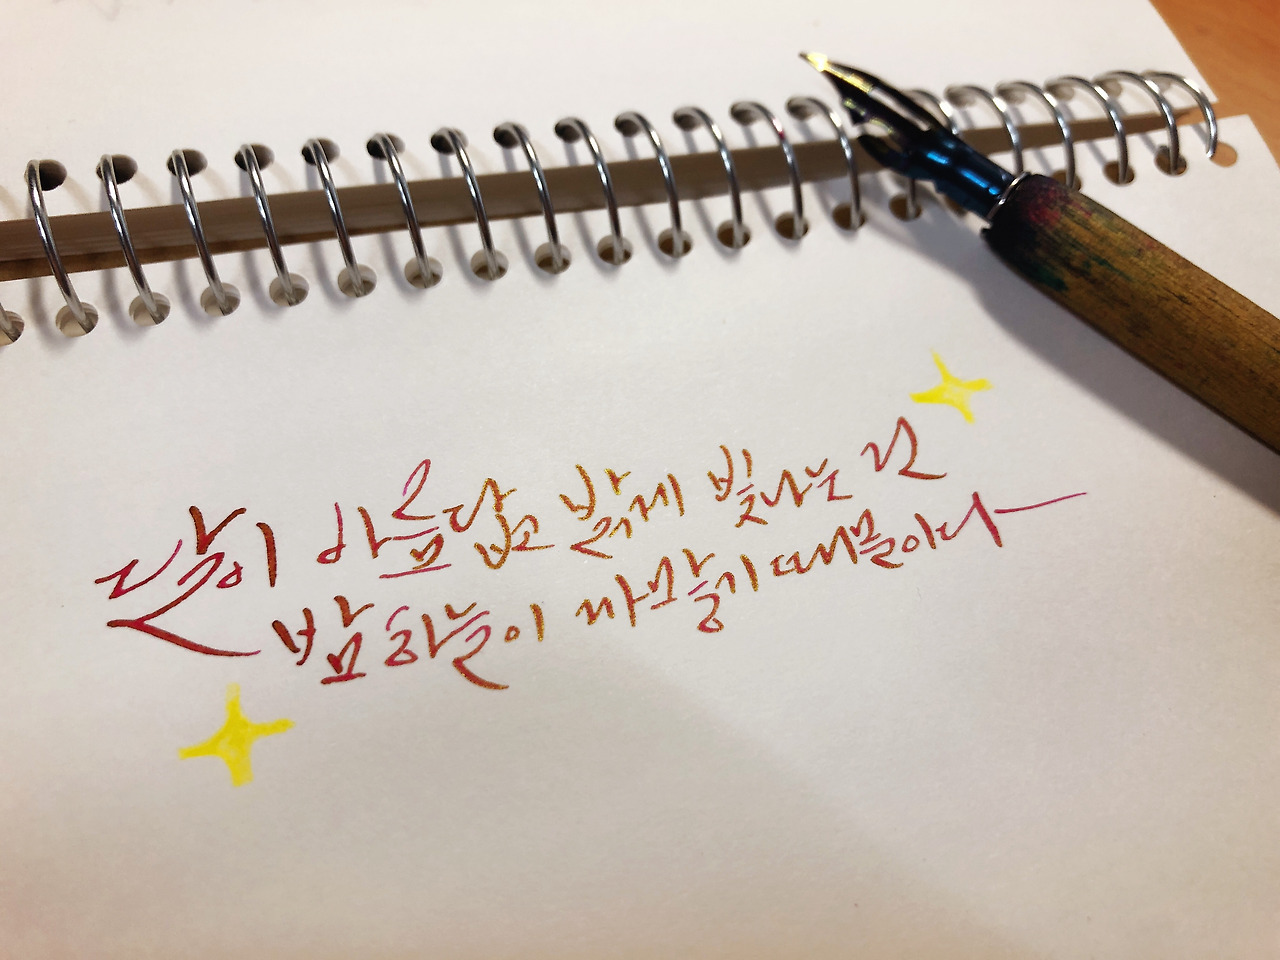 달이 아름답고 밝게 빛나는 건
밤하늘이 까맣기 때문이다